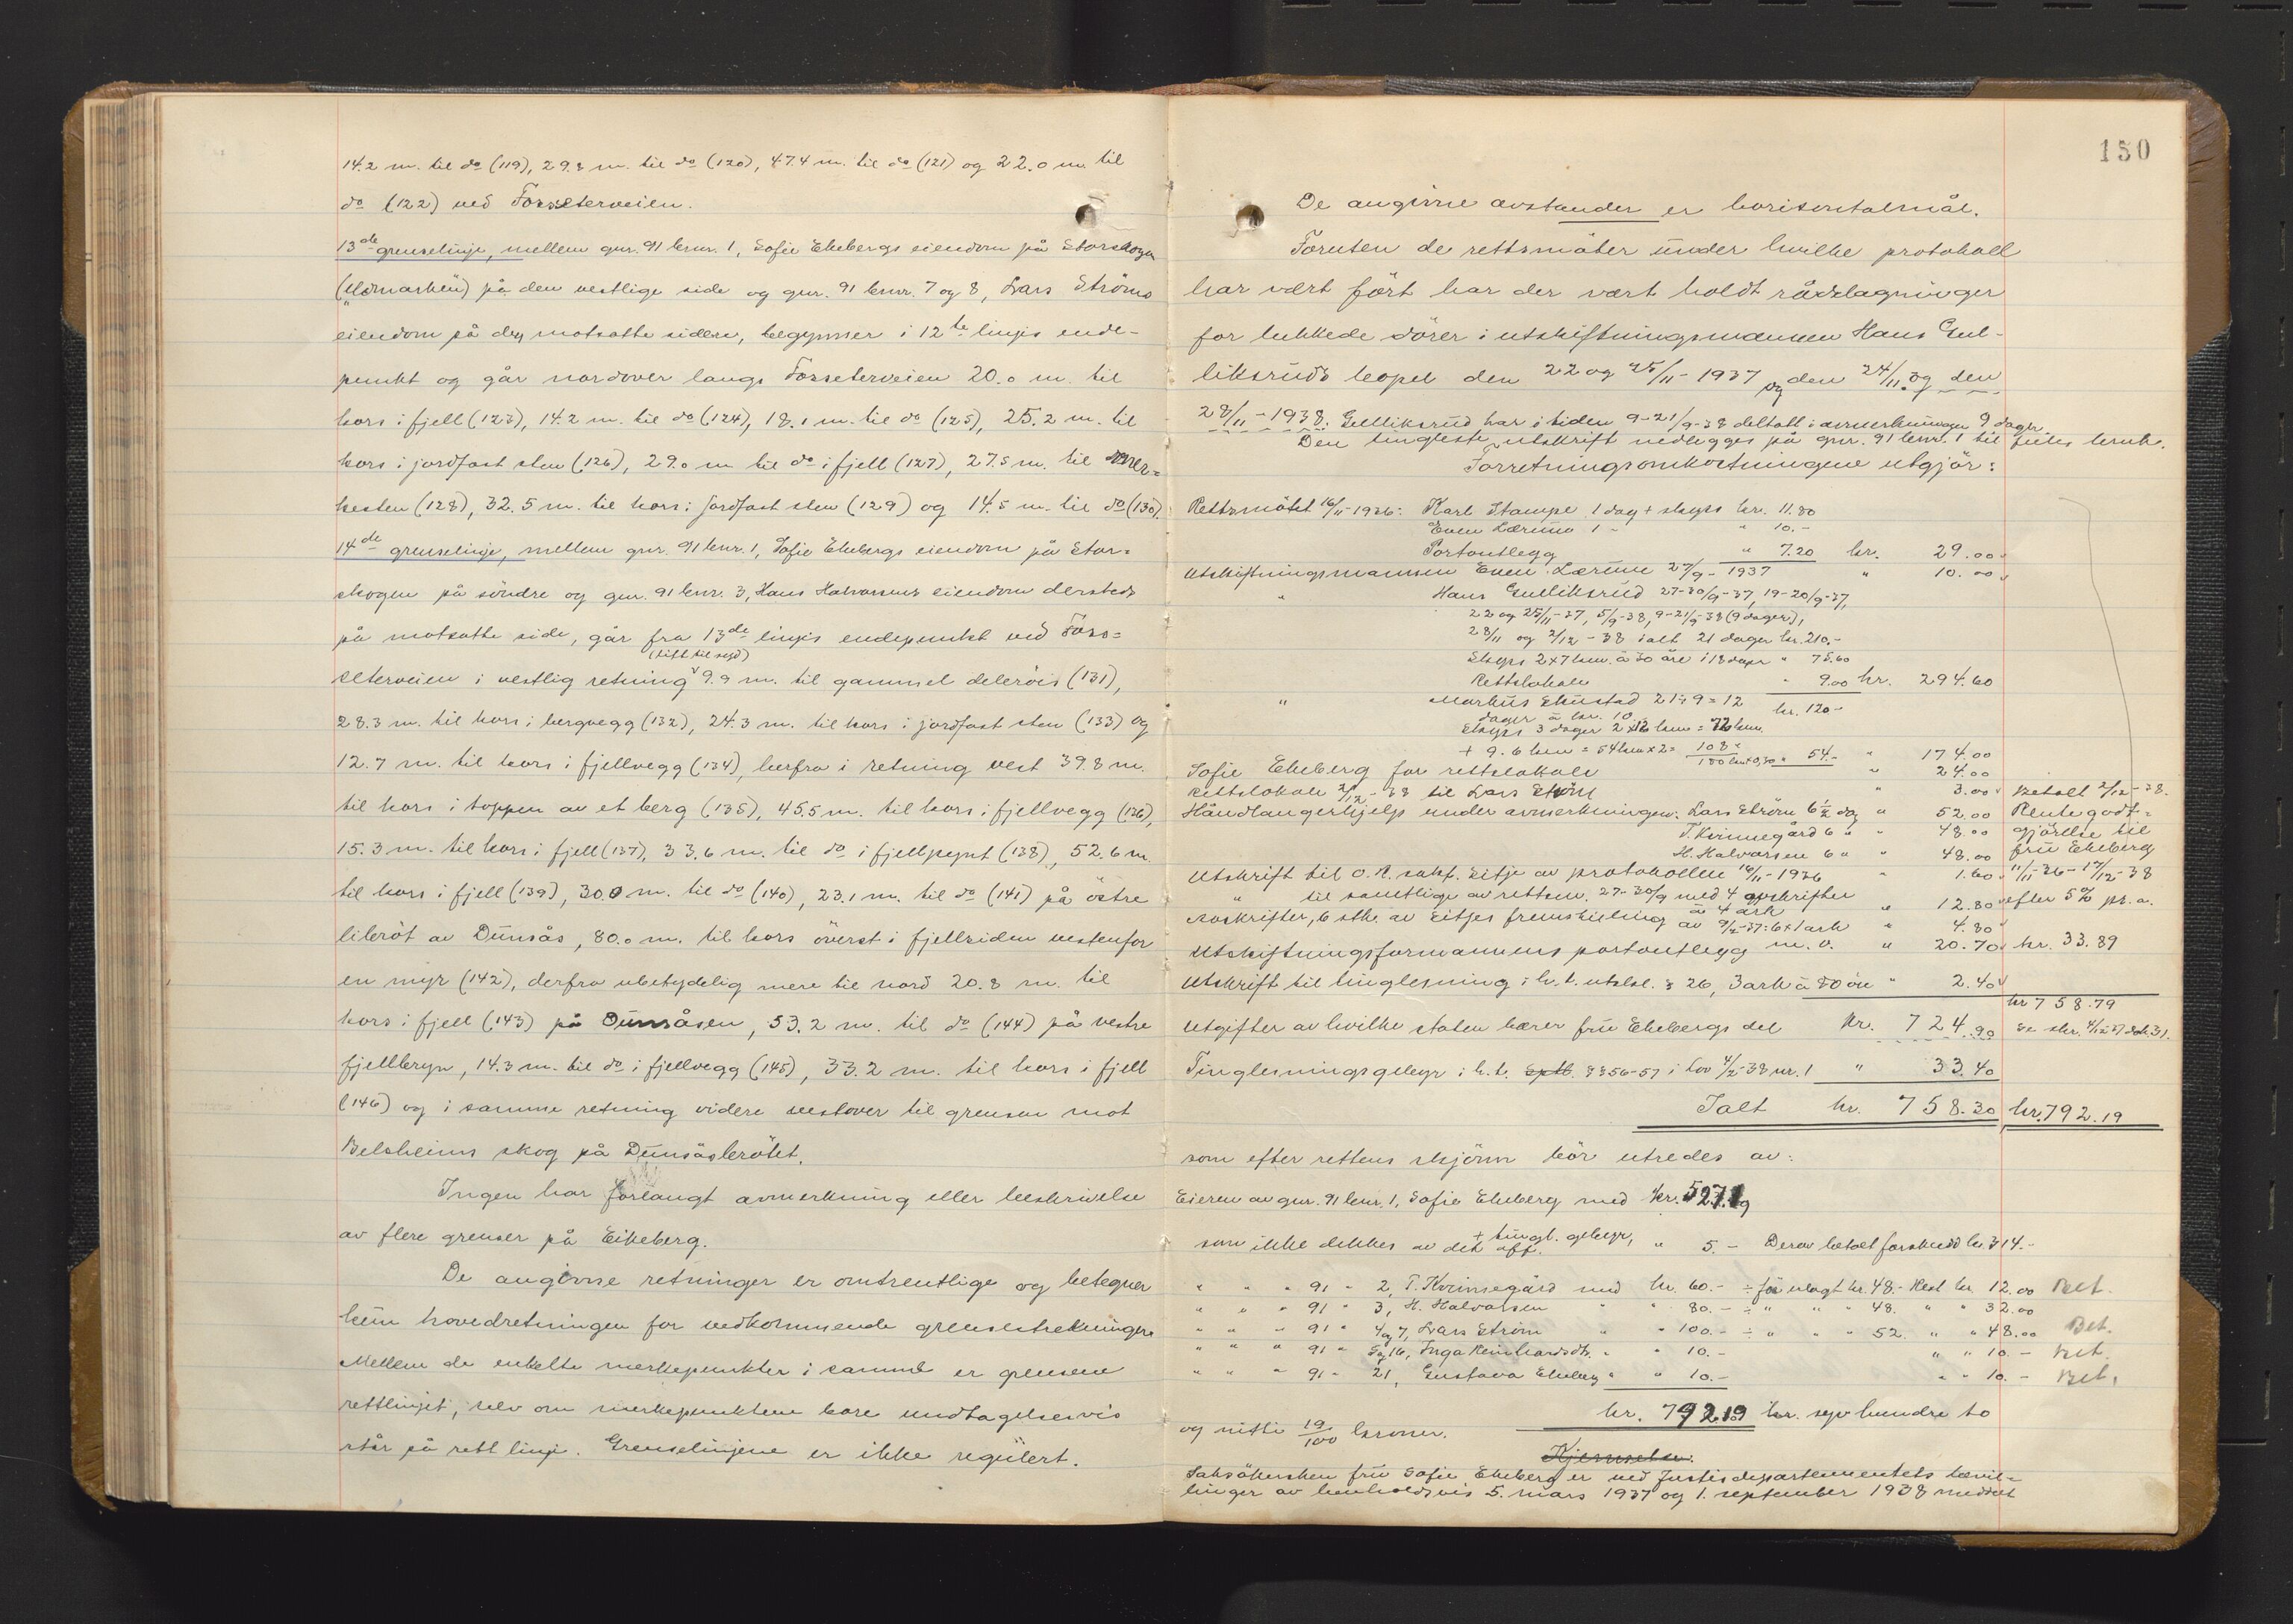 14.2 m. til do (119), 29.8 m. til do (120), 47.4 m. til do (121) og 22.0 m. til
do (122) ved Forsseterveien.
13de grenselinje, mellem gnr. 91 bnr. 1, Sofie Ekebergs eiendom på Storskogen
på den vestlige side og gnr. 91 bnr. 7 og 8, Lars Ströms
eiendom på den motsatte siden, begynner i 12te linjes ende-
punkt og går nordover langs Fosseterveien 20.0 m. til
kors i fjell (123), 14.2 m. til do (124), 18.1 m. til do (125), 25.2 m. til
kors i jordfast sten (126), 29.0 m til do i fjell (127), 27.5 m. til mer-
kesten (128), 32.5 m. til kors i jordfast sten (129) og 14.5 m. til do (130).
14de grenselinje, mellem gnr. 91 bnr. 1, Sofie Ekebergs eiendom på Stor-
skogen på söndre og gnr. 91 bnr. 3, Hans Halvorsens eiendom dersteds
på motsatte side, går fra 13de linjes endepunkt ved Foss-
(litt til syd)
seterveien i vestlig retning 9.9 m. til gammel deleröis (131),
28.3 m. til kors i bergvegg (132), 24.3 m. til kors i jordfast sten (133) og
12.7 m. til kors i fjellvegg (134), herfra i retning vest 39.8 m.
til kors i toppen av et berg (135), 45.5 m. til kors i fjellvegg (136),
15.3 m. til kors i fjell (137), 33.6 m. til do i fjellpynt (138), 52.6 m.
til kors i fjell (139), 30.0 m. til do (140), 23.1 m. til do (141) på östre
libröt av Dunsås, 80.0 m. til kors överst i fjellsiden vestenfor
en myr (142), derfra ubetydelig mere til nord 20.8 m. til
kors i fjell (143) på Dunsåsen, 53.2 m. til do (144) på vestre
fjellbryn, 14.3 m. til do i fjellvegg (145), 33.2 m. til kors i fjell
(146) og i samme retning videre vestover til grensen mot
Belsheims skog på Dunsåsbrötet.
Ingen har forlangt avmerkning eller beskrivelse
av flere grenser på Eikeberg.
De angivne retninger er omtrentlige og betegner
kun hovedretningen for vedkommende grensestrekninger.
Mellem de enkelte merkepunkter i samme er grensene
rettlinjet, selv om merkepunktene bare undtagelsesvis
står på rett linje. Grenselinjene er ikke regulert.
150
De angivne avstander er horisontalmål.
Foruten de rettsmöter under hvilke protokoll
har vært fört har der vært holdt rådslagninger
for lukkede dörer i utskiftningsmannen Hans Gul-
liksruds bopel den 22 og 25/11-1937 og den 24/11. og den
28/11-1938. Gulliksrud har i tiden 9-21/9-38 deltatt i avmerkningen 9 dager.
Den tingleste utskrift nedlegges på gnr. 91 bnr. 1 til felles bruk.
Forretningsomkostningene utgjör:
Rettsmötet 16/11-1936: Karl Stampe 1 dag + skyss kr. 11.80
Even Lærum 1 - " 10.-
Portoutlegg " 7.20 kr. 29.00
Utskiftningsmannen Even Lærum 27/9-1937 " 10.00
" Hans Gulliksrud 27-30/9-37, 19-20/9-37,
22 og 25/11-37, 5/9-38, 9-21/9-38 (9 dager),
28/11 og 2/12-38 ialt 21 dager kr. 210.-
Skyss 2x7 km. à 30 öre i 18 dager " 75.60
Rettslokale " 9.00 kr. 294.60
" Markus Skustad 21÷9=12
dager à kr. 10 kr. 120-
Skyss 3 dager 2x12 km = 72 km
+ 9.6 km = 54 km x 2 = 108 " 54.- " 174.00
Sofie Ekeberg for rettslokale " 24.00
Rettslokale 2/12-38 til Lars Ström " 3.00 Betalt 2/12-38.
Håndlangerhjelp under avmerkningen: Lars Ström 6½ dag " 52.00 Rentegodt-
T. Kvinnegård 6 " " 48.00 gjörelse til
H. Halvorsen 6 " " 48.00 fru Ekeberg
Utskrift til O.R. sakf. Eitje av protokollen 16/11-1936 " 1.60 11/11-36-17/12-38
" til samtlige av rettsm. 27-30/9 med 4 avskrifter
à 4 ark " 12.80 efter 5% pr. a.
Avskrifter, 6 stk. av Eitjes fremstilling av 9/2-37: 6x1 ark " 4.80
Utskiftningsformannens portoutlegg m.v. " 20.70 kr. 33.89
Utskrift til tinglesning i h.t. utskl. § 26, 3 ark à 80 öre " 2.40
kr 758.79
Utgifter av hvilke staten bærer fru Ekebergs del kr. 724.90
Tinglesningsgebyr i h.t. § 356-57 i lov 4/2-38 nr. 1 " 33.40
Ialt kr. 758.30 kr. 792.19
som efter rettens skjönn bör utredes av:
Eieren av gnr. 91 bnr. 1, Sofie Ekeberg med kr. 527.19
+ tingl. gebyr,
som ikke dekkes av det off. " 5.- Derav betalt forskudd kr. 314.-
" " " 91 " 2, T. Kvinnegård med kr. 60.- ÷ för utlagt kr. 48.- Rest kr. 12.00 Bet.
" " " 91 " 3, H. Halvorsen " " 80.- ÷ " " " 48. " " 32.00
" " " 91 " 4 og 7, Lars Ström " " 100.- ÷ " " " 52. " " 48.00 Bet.
" " " 91 " 5 og 16, Inga Reinhardsdtr. " " 10.- " " 10.- Bet.
" " " 91 " 21, Gustava Ekeberg " " 10.- " " 10.- Bet.
kr. 792.19 kr. syv hundre to
og nitti 19/100 kroner.
Kjennelse.
Saksökersken fru Sofie Ekeberg er ved Justisdepartementets bevil-
linger av henholdsvis 5. mars 1937 og 1. september 1938 meddelt